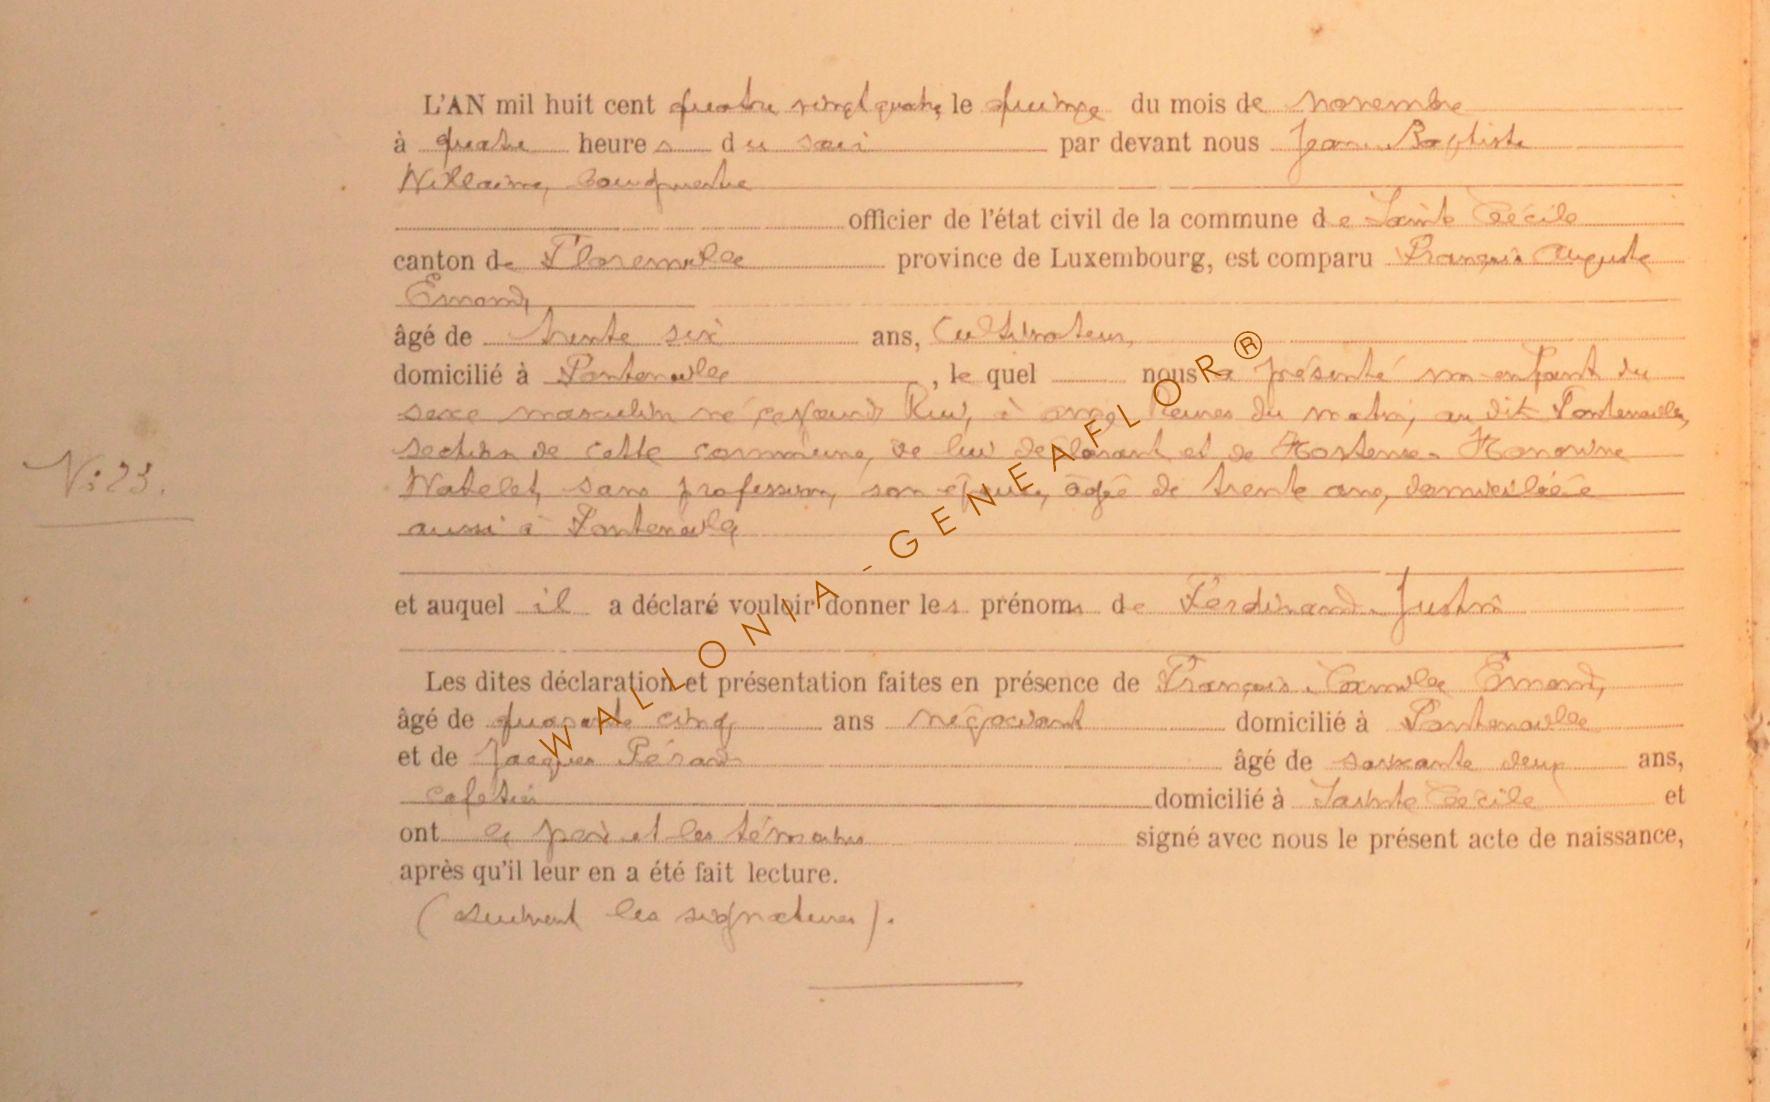 L'AN mil huit cent quatre vingt quatre, le quinze du mois de novembre
à quatre heures du soir par devant nous Jean-Baptiste
Willaime, bourgmestre
officier de l'état civil de la commune de Sainte Cécile
canton de Florenville province de Luxembourg, est comparu François Auguste
Emond,
âgé de trente six ans, Cultivateur,
domicilié à Fontenoille, le quel nous a présenté un enfant du
sexe masculin né cejourd'hui, à onze heures du matin, au dit Fontenoille,
section de cette commune, de lui déclarant et de Hortense-Honorine
Watelet, sans profession, son épouse, âgée de trente ans, domiciliée
aussi à Fontenoille
N: 23.
et auquel il a déclaré vouloir donner les prénoms de Ferdinand-Justin
Les dites déclaration et présentation faites en présence de François-Camille Emond,
âgé de quarante cinq ans négociant domicilié à Fontenoille
et de Jacques Pérard âgé de soixante deux ans,
cafetier domicilié à Sainte Cécile et
ont le père et les témoins signé avec nous le présent acte de naissance,
après qu'il leur en a été fait lecture.
(suivent les signatures).
WALLONIA-GENEAFLOR®